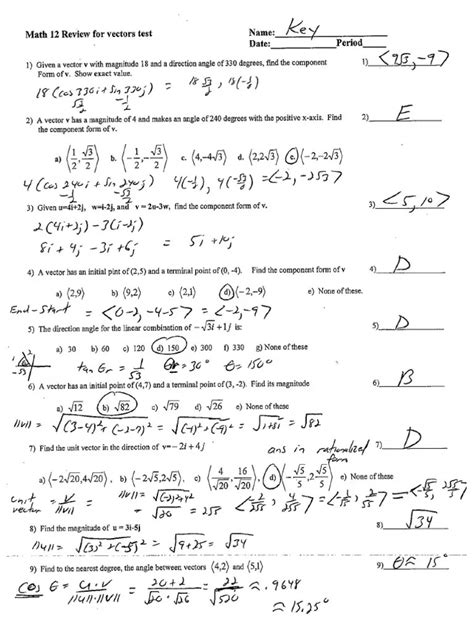 Math 12 Review for vectors test
Name: Key
Date: Period
1) Given a vector v with magnitude 18 and a direction angle of 330 degrees, find the component
Form of v. Show exact value.
1) <9√3, -9>
18 (cos 330 i + sin 330 j) = 18 √3/2, 18(-1/2)
√3/2 -1/2
2) A vector v has a magnitude of 4 and makes an angle of 240 degrees with the positive x-axis. Find
the component form of v.
2) E
a) <1/2, √3/2> b. <-1/2, -√3/2> c. <4, -4√3> d. <2, 2√3> e. <-2, -2√3>
4 (cos 240 i + sin 240 j) 4(-1/2), 4(-√3/2) = <-2, -2√3>
-1/2 -√3/2
3) Given u=4i+2j, w=i-2j, and v = 2u-3w, find the component form of v.
3) <5, 10>
2(4i+2j) - 3(i-2j)
8i + 4j - 3i + 6j = 5i + 10j
4) A vector has an initial pint of (2,5) and a terminal point of (0, -4). Find the component form of v
4) D
a) <2,9> b) <9,2> c) <2,1> d) <-2,-9> e) None of these.
End - Start = <0-2, -4-5> = <-2, -9>
5) The direction angle for the linear combination of -√3i + 1j is:
5) D
a) 30 b) 60 c) 120 d) 150 e) 300 f) 330 g) None of these
tan θr = 1/√3 θr = 30° θ = 150°
-√3
6) A vector has an initial point of (4,7) and a terminal point of (3, -2). Find its magnitude
6) B
a) √12 b) √82 c) √79 d) √26 e) None of these
||v|| = √(3-4)² + (-2-7)² = √(-1)² + (-9)² = √1+81 = √82
7) Find the unit vector in the direction of v=-2i + 4j
ans in rationalized form
7) D
a) <-2√20, 4√20>, b) <-2√5, 2√5> c) <4/√20, 16/√20> d) <-√5/5, 2√5/5> e) None of these
unit vector = v/||v|| ||v|| = √(-2)²+4² = √20 = 2√5 <-2/2√5, 4/2√5> = <-1/√5, 2/√5>
8) Find the magnitude of u = 3i-5j
8) √34
||u|| = √(3)² + (-5)² = √9+25 = √34
9) Find to the nearest degree, the angle between vectors <4,2> and <5,1>
9) θ ≈ 15°
cos θ = u·v/||u||·||v|| = 20+2/√20·√26 = 22/√520 ≈ .9648
≈ 15.25°